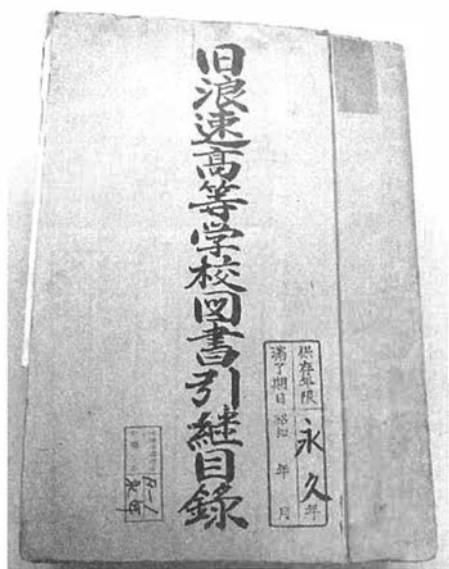 旧浪速高等学校図書引継目録
保存年限 永久年
満了期日 昭和 年 月
B-1